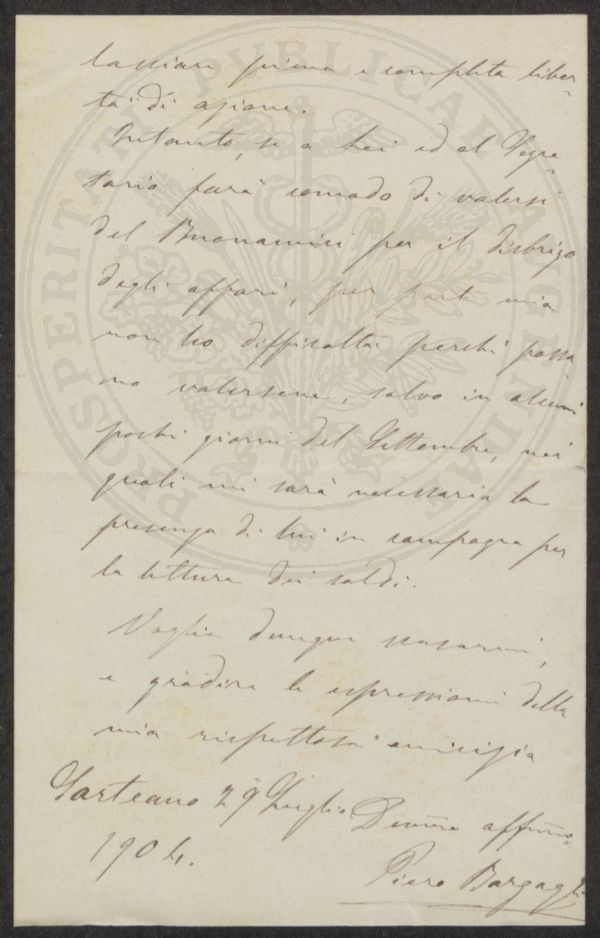 lasciare piena e completa liber-
tà di azione.
Intanto, se a Lei ed al Segre-
tario farà comodo di valersi
del Buonamici per il disbrigo
degli affari, per parte mia
non ho difficoltà perchè possa-
no valersene, salvo in alcuni
pochi giorni del Settembre, nei
quali mi sarà necessaria la
presenza di lui in campagna per
la lettura dei saldi.
Voglia dunque scusarmi,
e gradire le espressioni della
mia rispettosa amicizia
Sarteano 29 Luglio
1904.
Devmo affmo
Piero Bargagli
PROSPERITATI PUBLICAE AUGENDAE